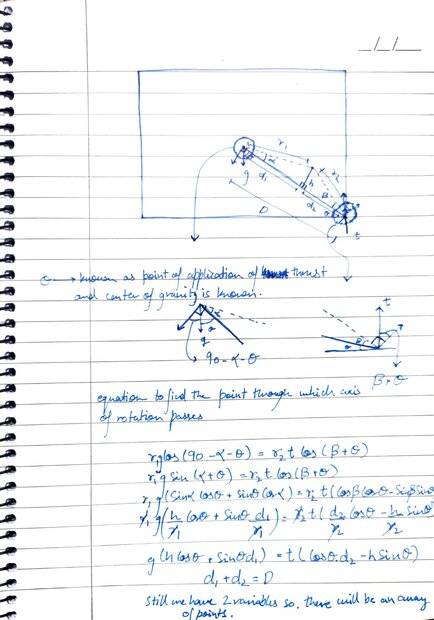 _/_/_
r₁
r₂
α
h
g
d₁
β
d₂
θ
D
t
θ → known as point of application of thrust
and center of gravity is known.
α
θ
g
90-α-θ
t
θ
β+θ
equation to find the point through which axis
of rotation passes
r₁g cos (90-α-θ) = r₂ t cos (β+θ)
r₁ g sin (α+θ) = r₂ t cos (β+θ)
r₁ g (sinα cosθ + sinθ cosα) = r₂ t (cosβ cosθ - sinβ sinθ)
r₁ g (h/r₁ cosθ + sinθ d₁/r₁) = r₂ t (d₂/r₂ cosθ - h/r₂ sinθ)
g (h cosθ + sinθ d₁) = t (cosθ d₂ - h sinθ)
d₁ + d₂ = D
still we have 2 variables so, there will be an array
of points.